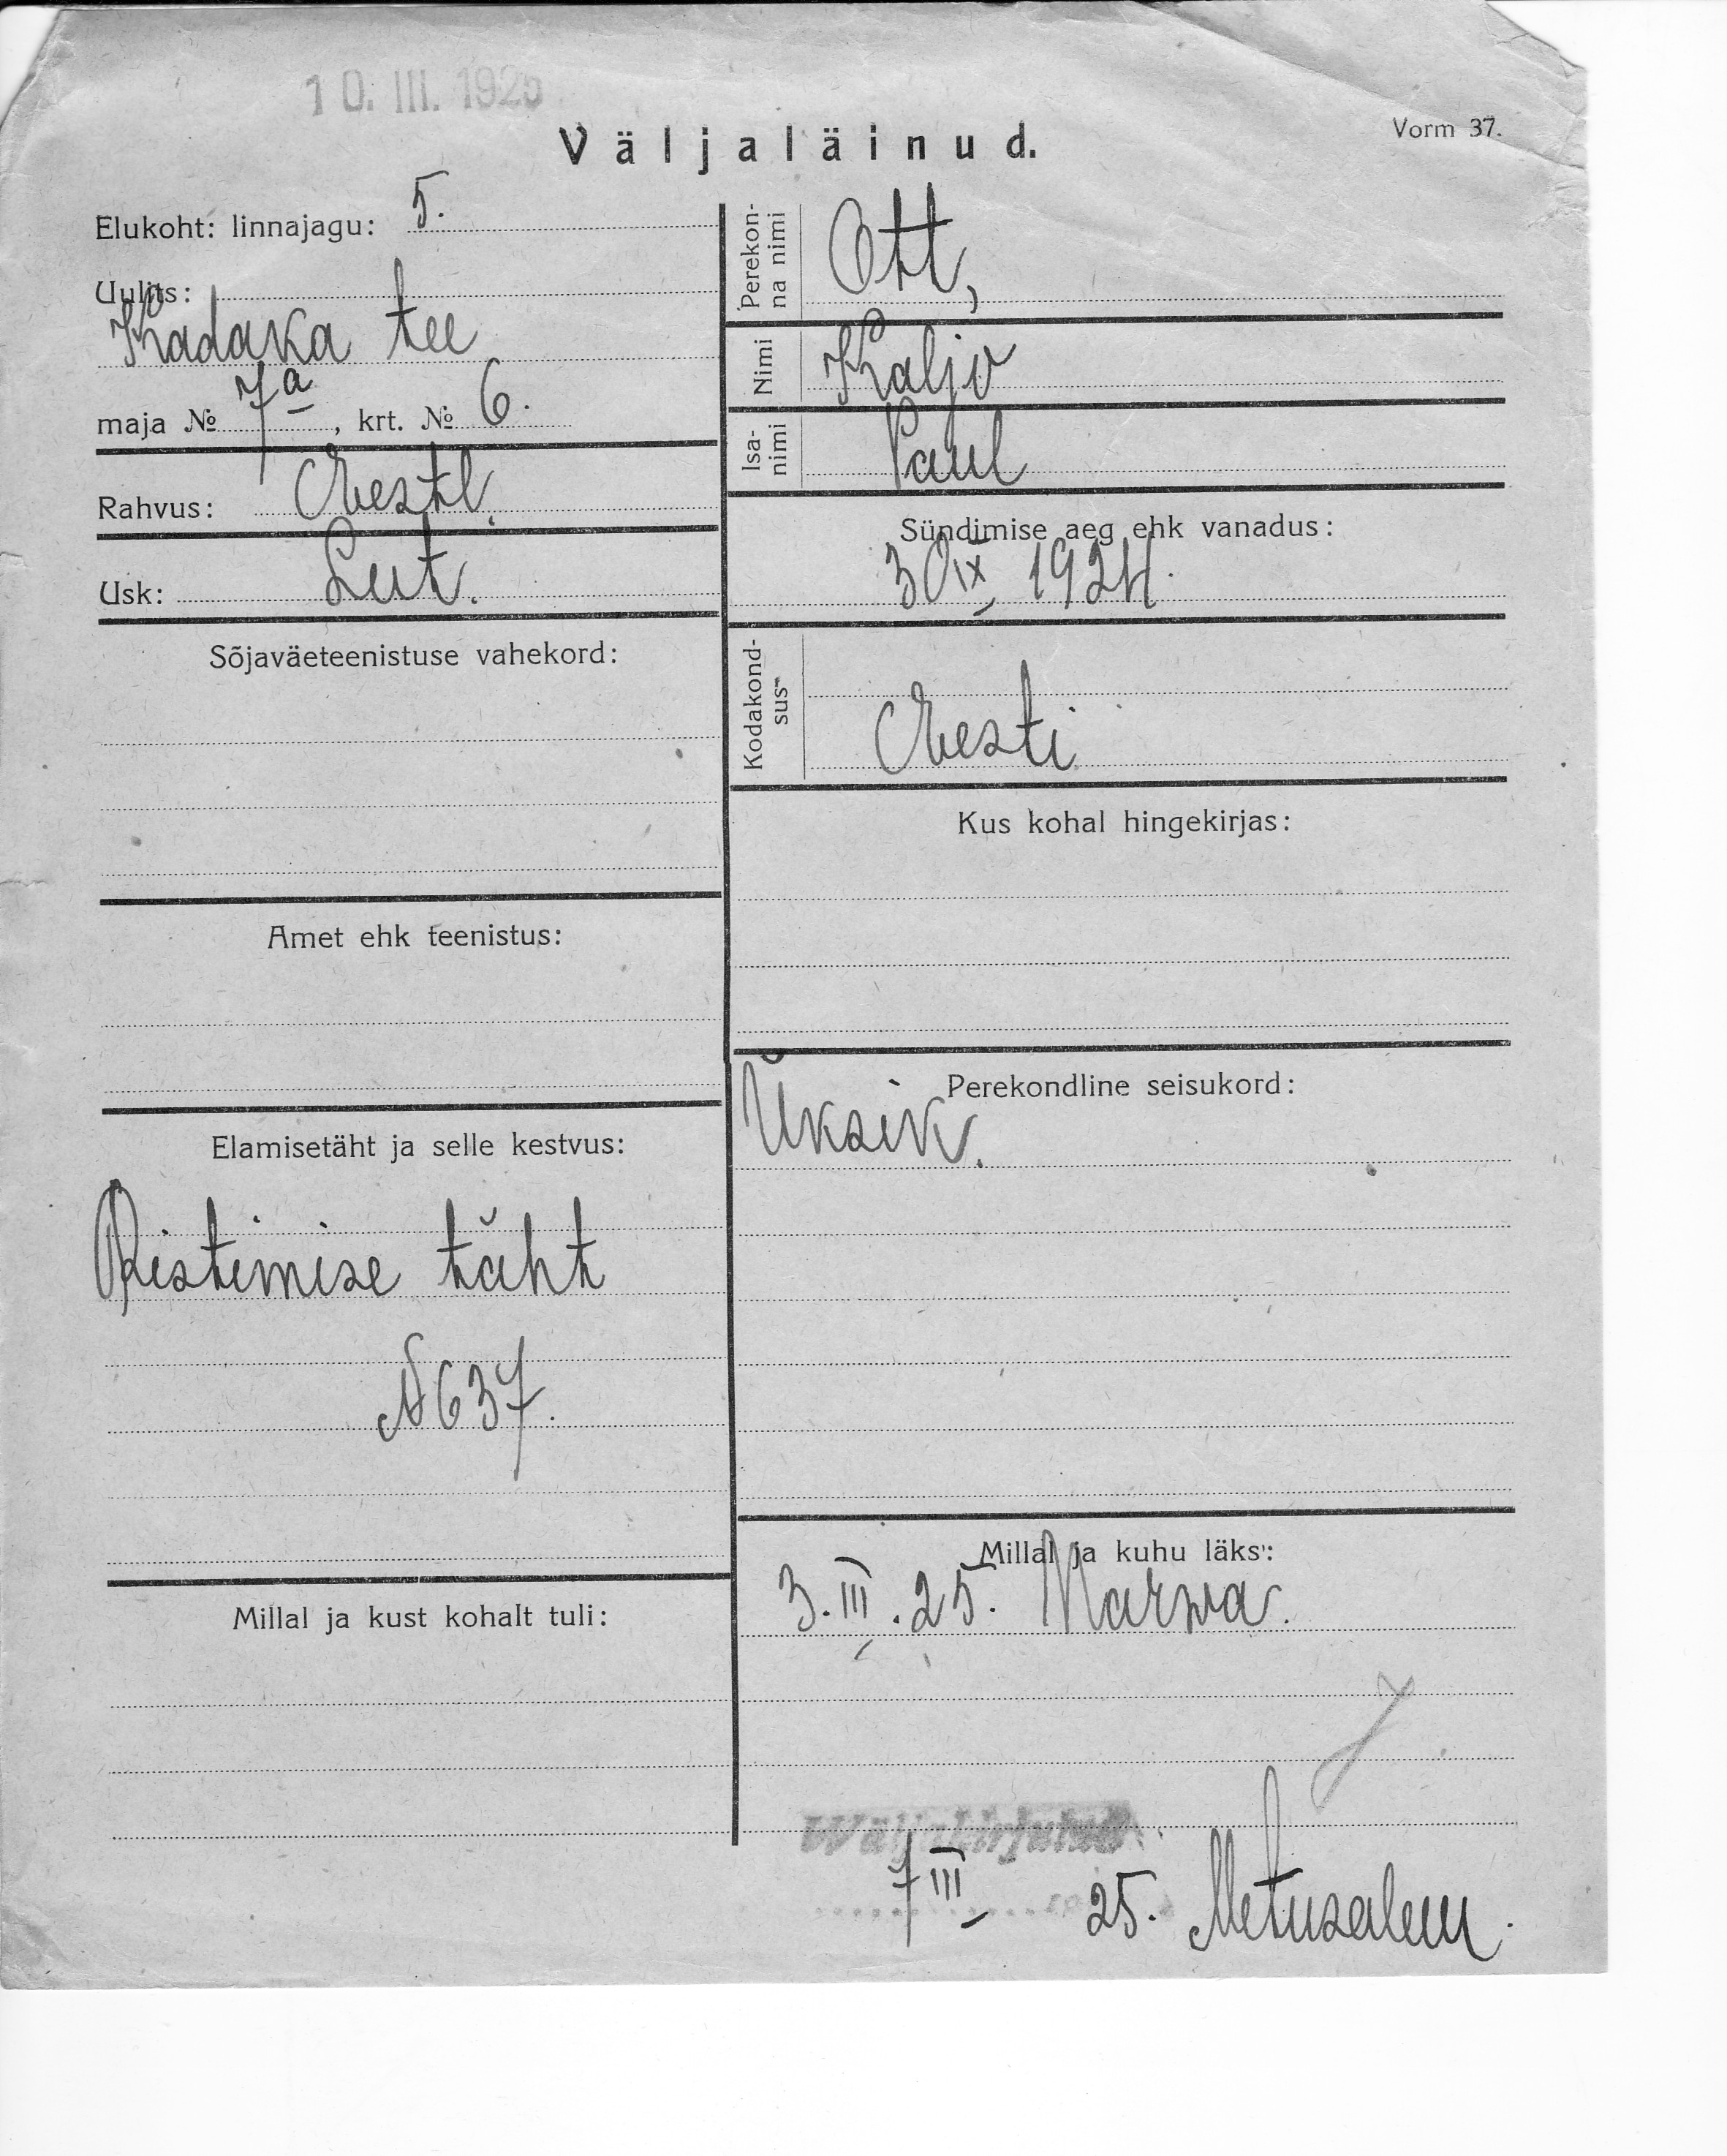 10. III. 1925
Väljaläinud.
Vorm 37.
Elukoht: linnajagu: 5.
Uulits:
Kadaka tee
maja № 7a, krt. № 6.
Rahvus: Eestl.
Usk: Lut.
Sõjaväeteenistuse vahekord:
Amet ehk teenistus:
Elamisetäht ja selle kestvus:
Ristimise täht
№ 637.
Millal ja kust kohalt tuli:
Perekon-
na nimi
Ott,
Nimi Kaljo
Isa-
nimi
Paul
Sündimise aeg ehk vanadus:
30 IX 1924.
Kodakond-
sus
Eesti
Kus kohal hingekirjas:
Perekondline seisukord:
Üksik.
Millal ja kuhu läks:
3. III. 25. Narwa.
Wäljakirjutud
7 III 25. Metusalem.